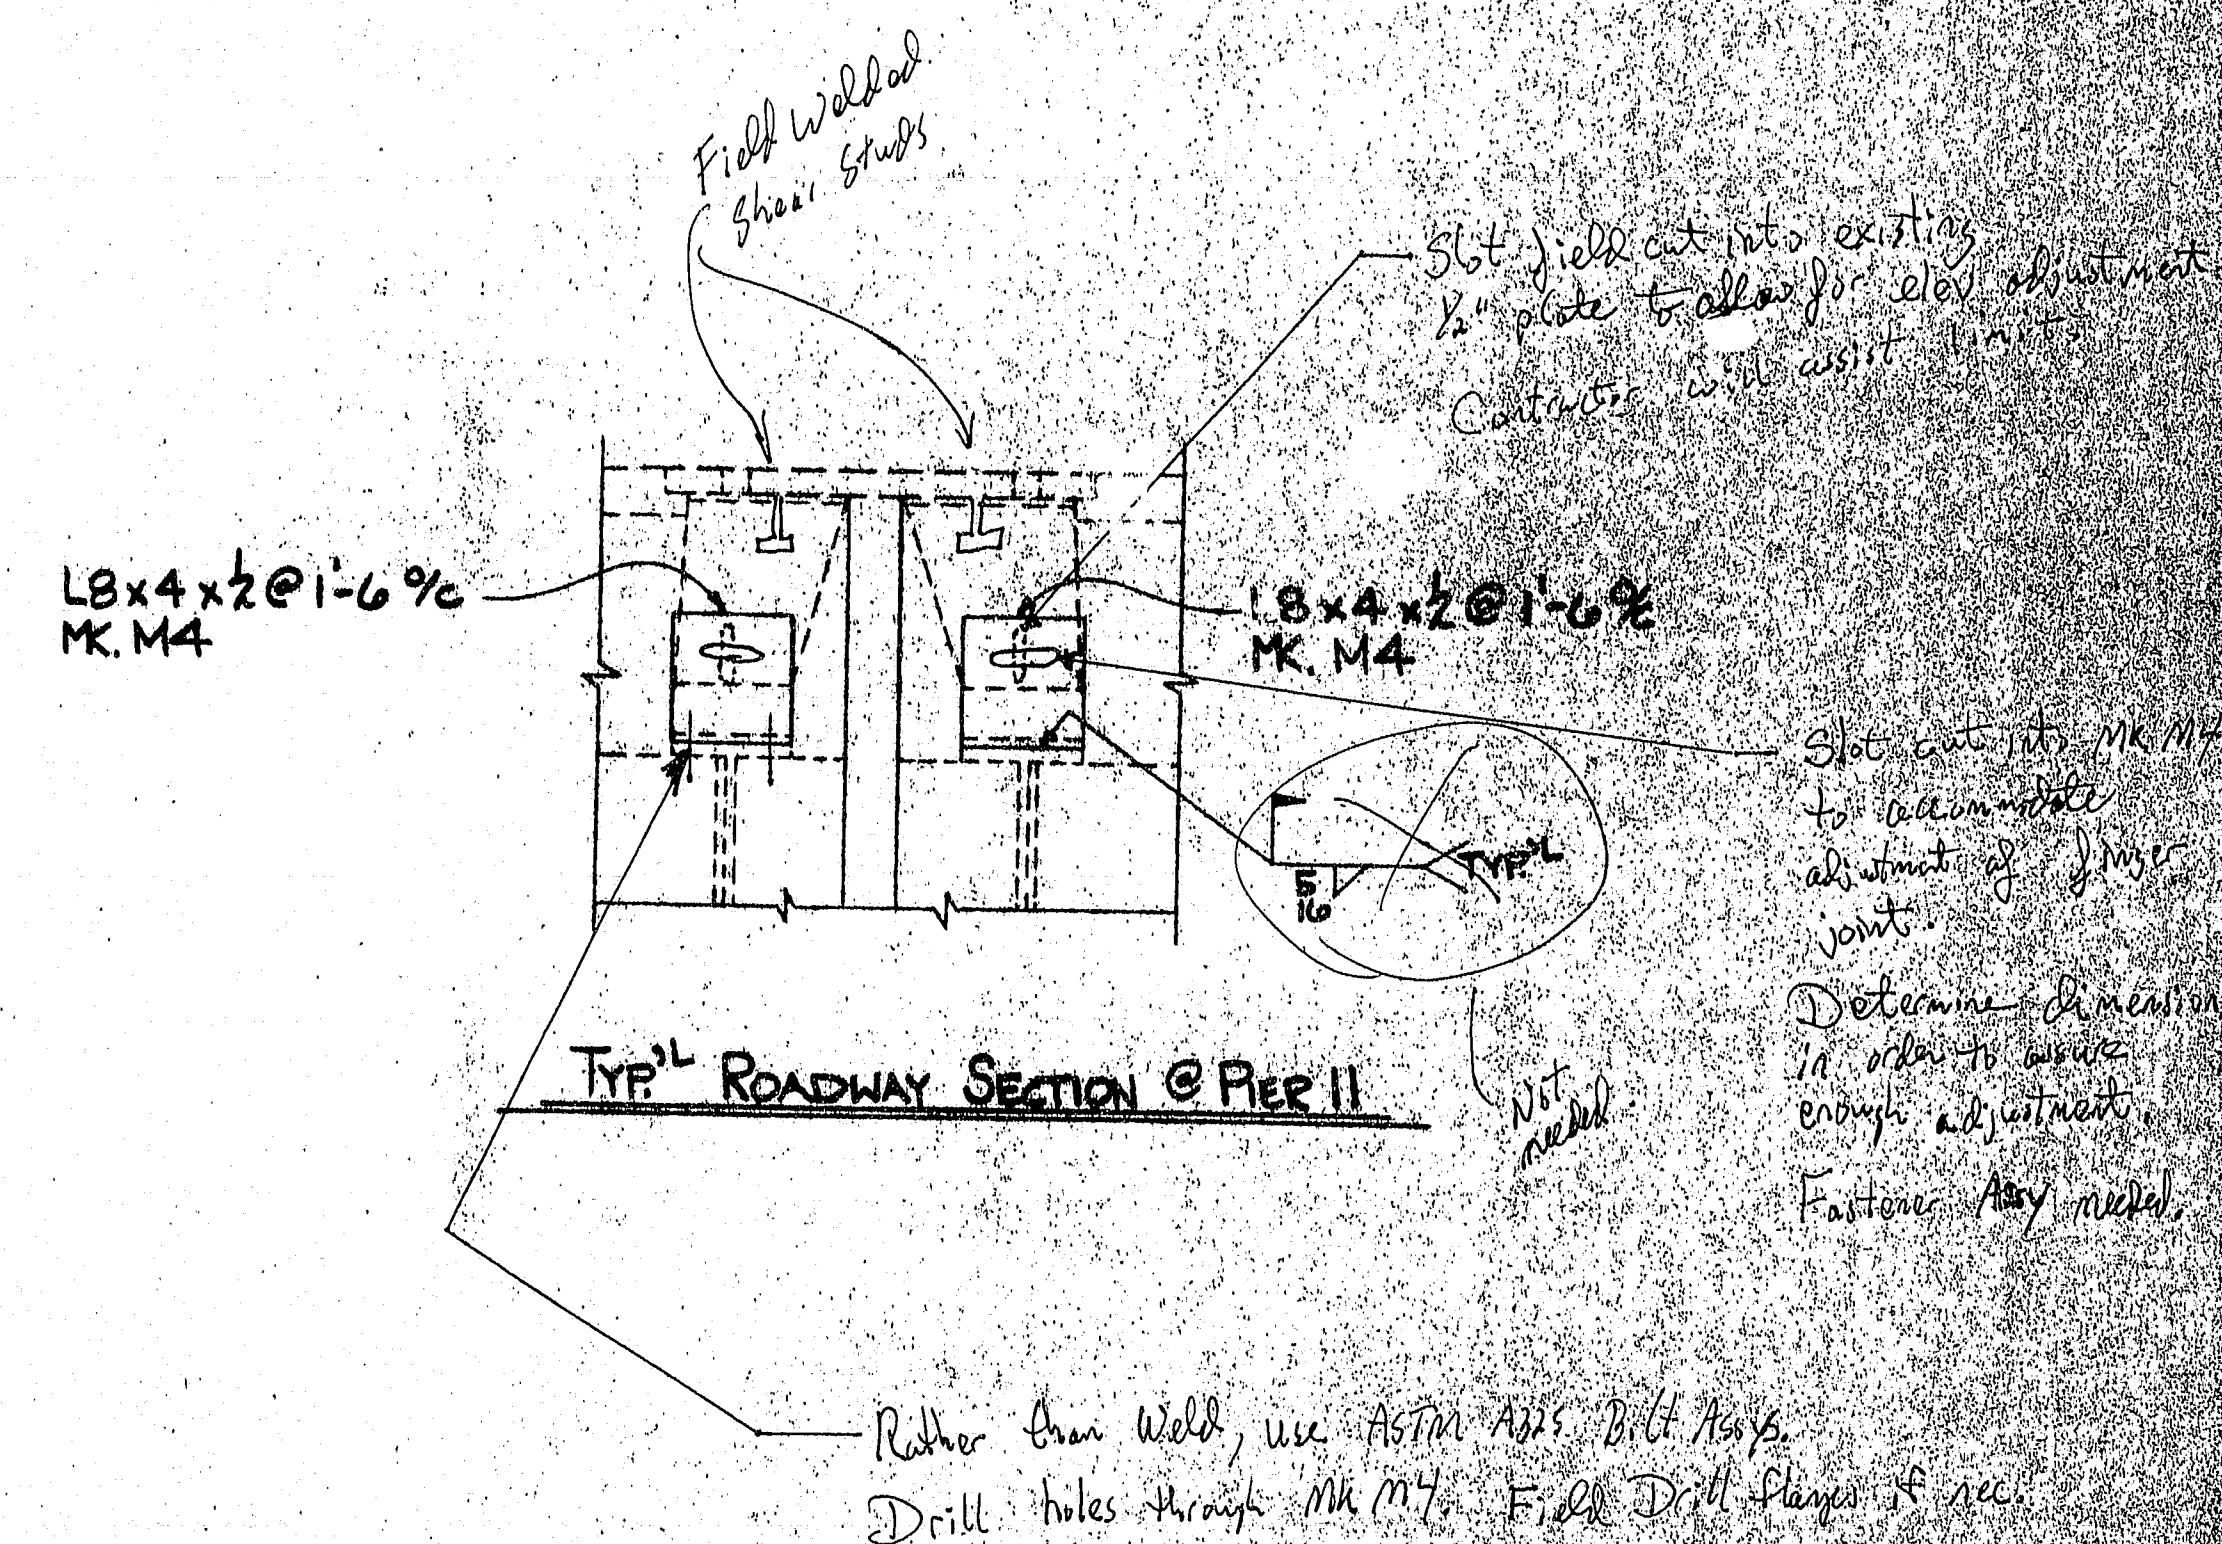 Field Welded
Shear Studs
Slot field cut into existing
1/2" plate to allow for elev adjustment.
Contractor will assist limits
L8x4x1/2 @ 1'-6 o/c
MK. M4
L8x4x1/2 @ 1'-6 o/c
MK. M4
Slot cut into MK M4
to accommodate
adjustment of finger
joint.
5/16
TYP.'L
Determine dimension
in order to assure
enough adjustment.
Fastener Assy needed.
TYP.'L ROADWAY SECTION @ PIER 11
Not
needed.
Rather than Weld, use ASTM A325 Bolt Assys.
Drill holes through MK M4. Field Drill flanges if nec.